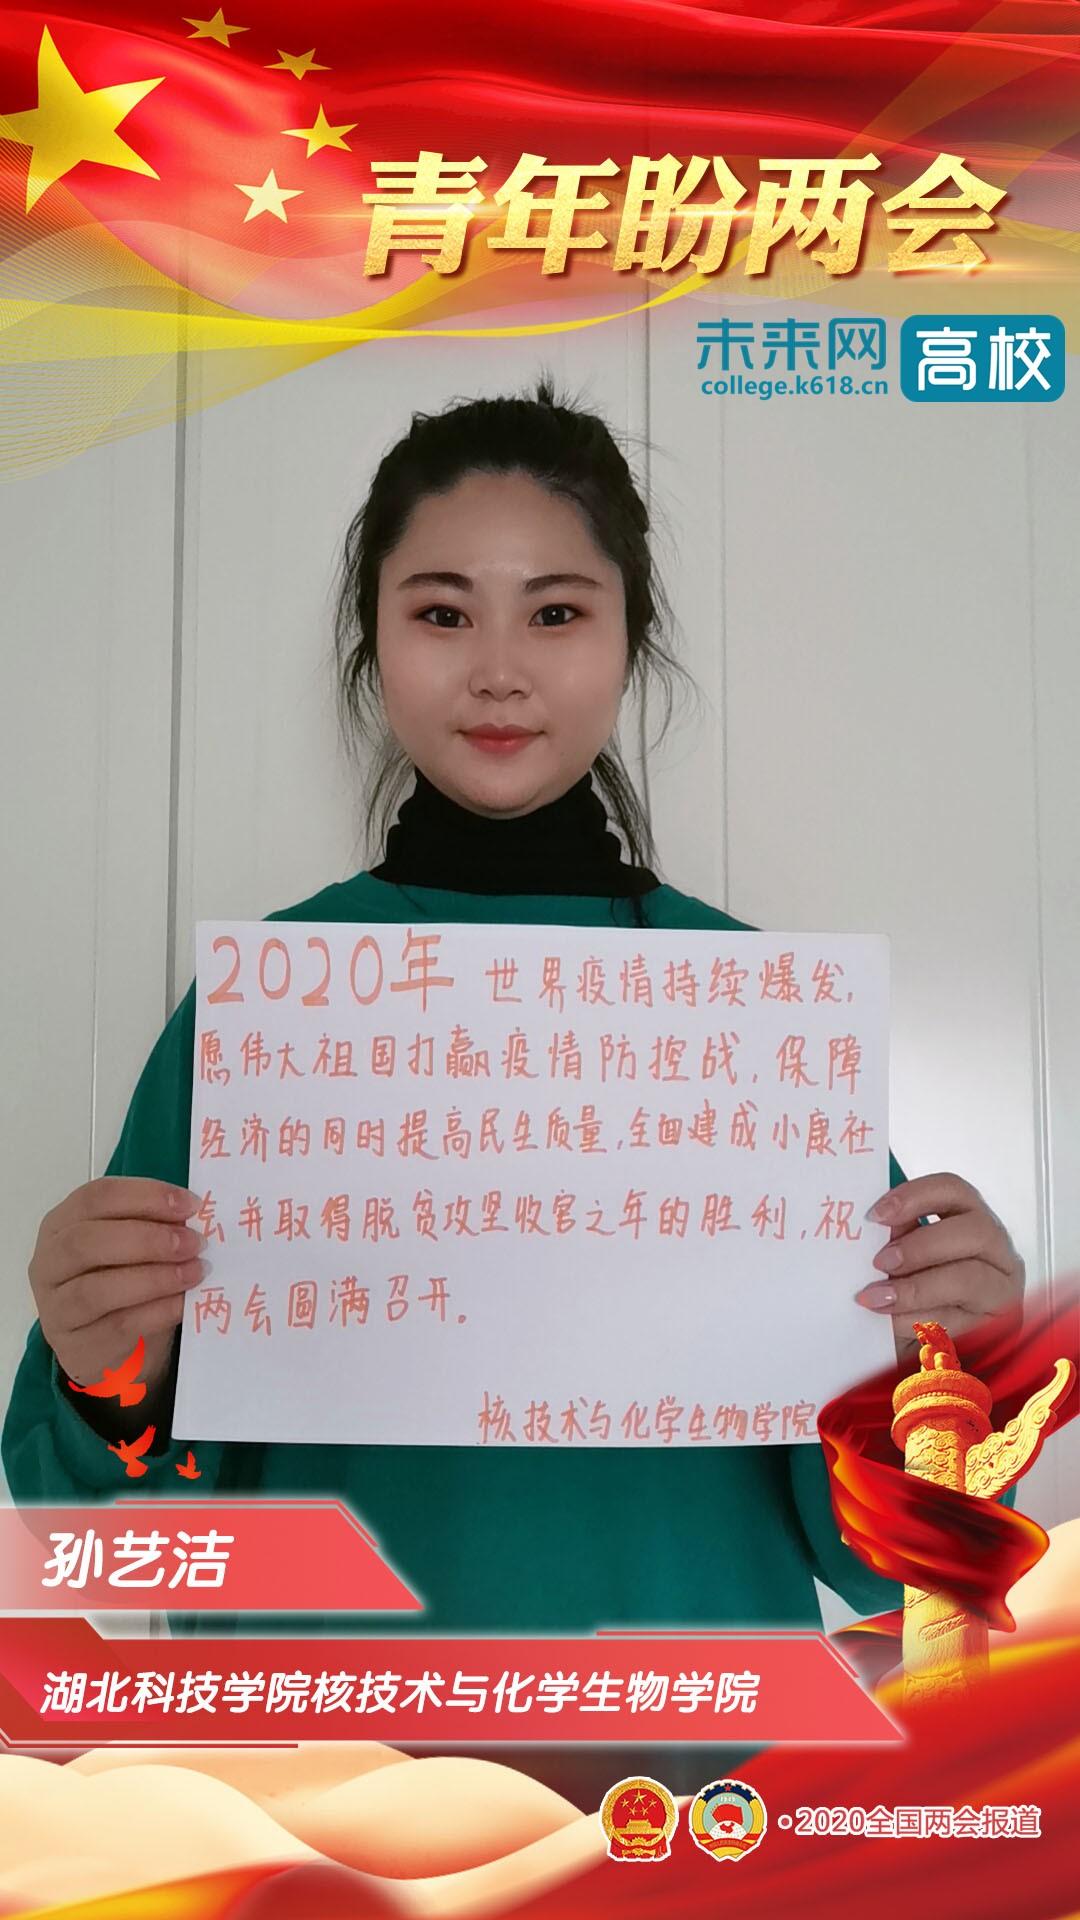 青年盼两会
未来网 高校
college.k618.cn
2020年 世界疫情持续爆发,
愿伟大祖国打赢疫情防控战,保障
经济的同时提高民生质量,全面建成小康社
会并取得脱贫攻坚收官之年的胜利,祝
两会圆满召开。
核技术与化学生物学院
孙艺洁
湖北科技学院核技术与化学生物学院
·2020全国两会报道